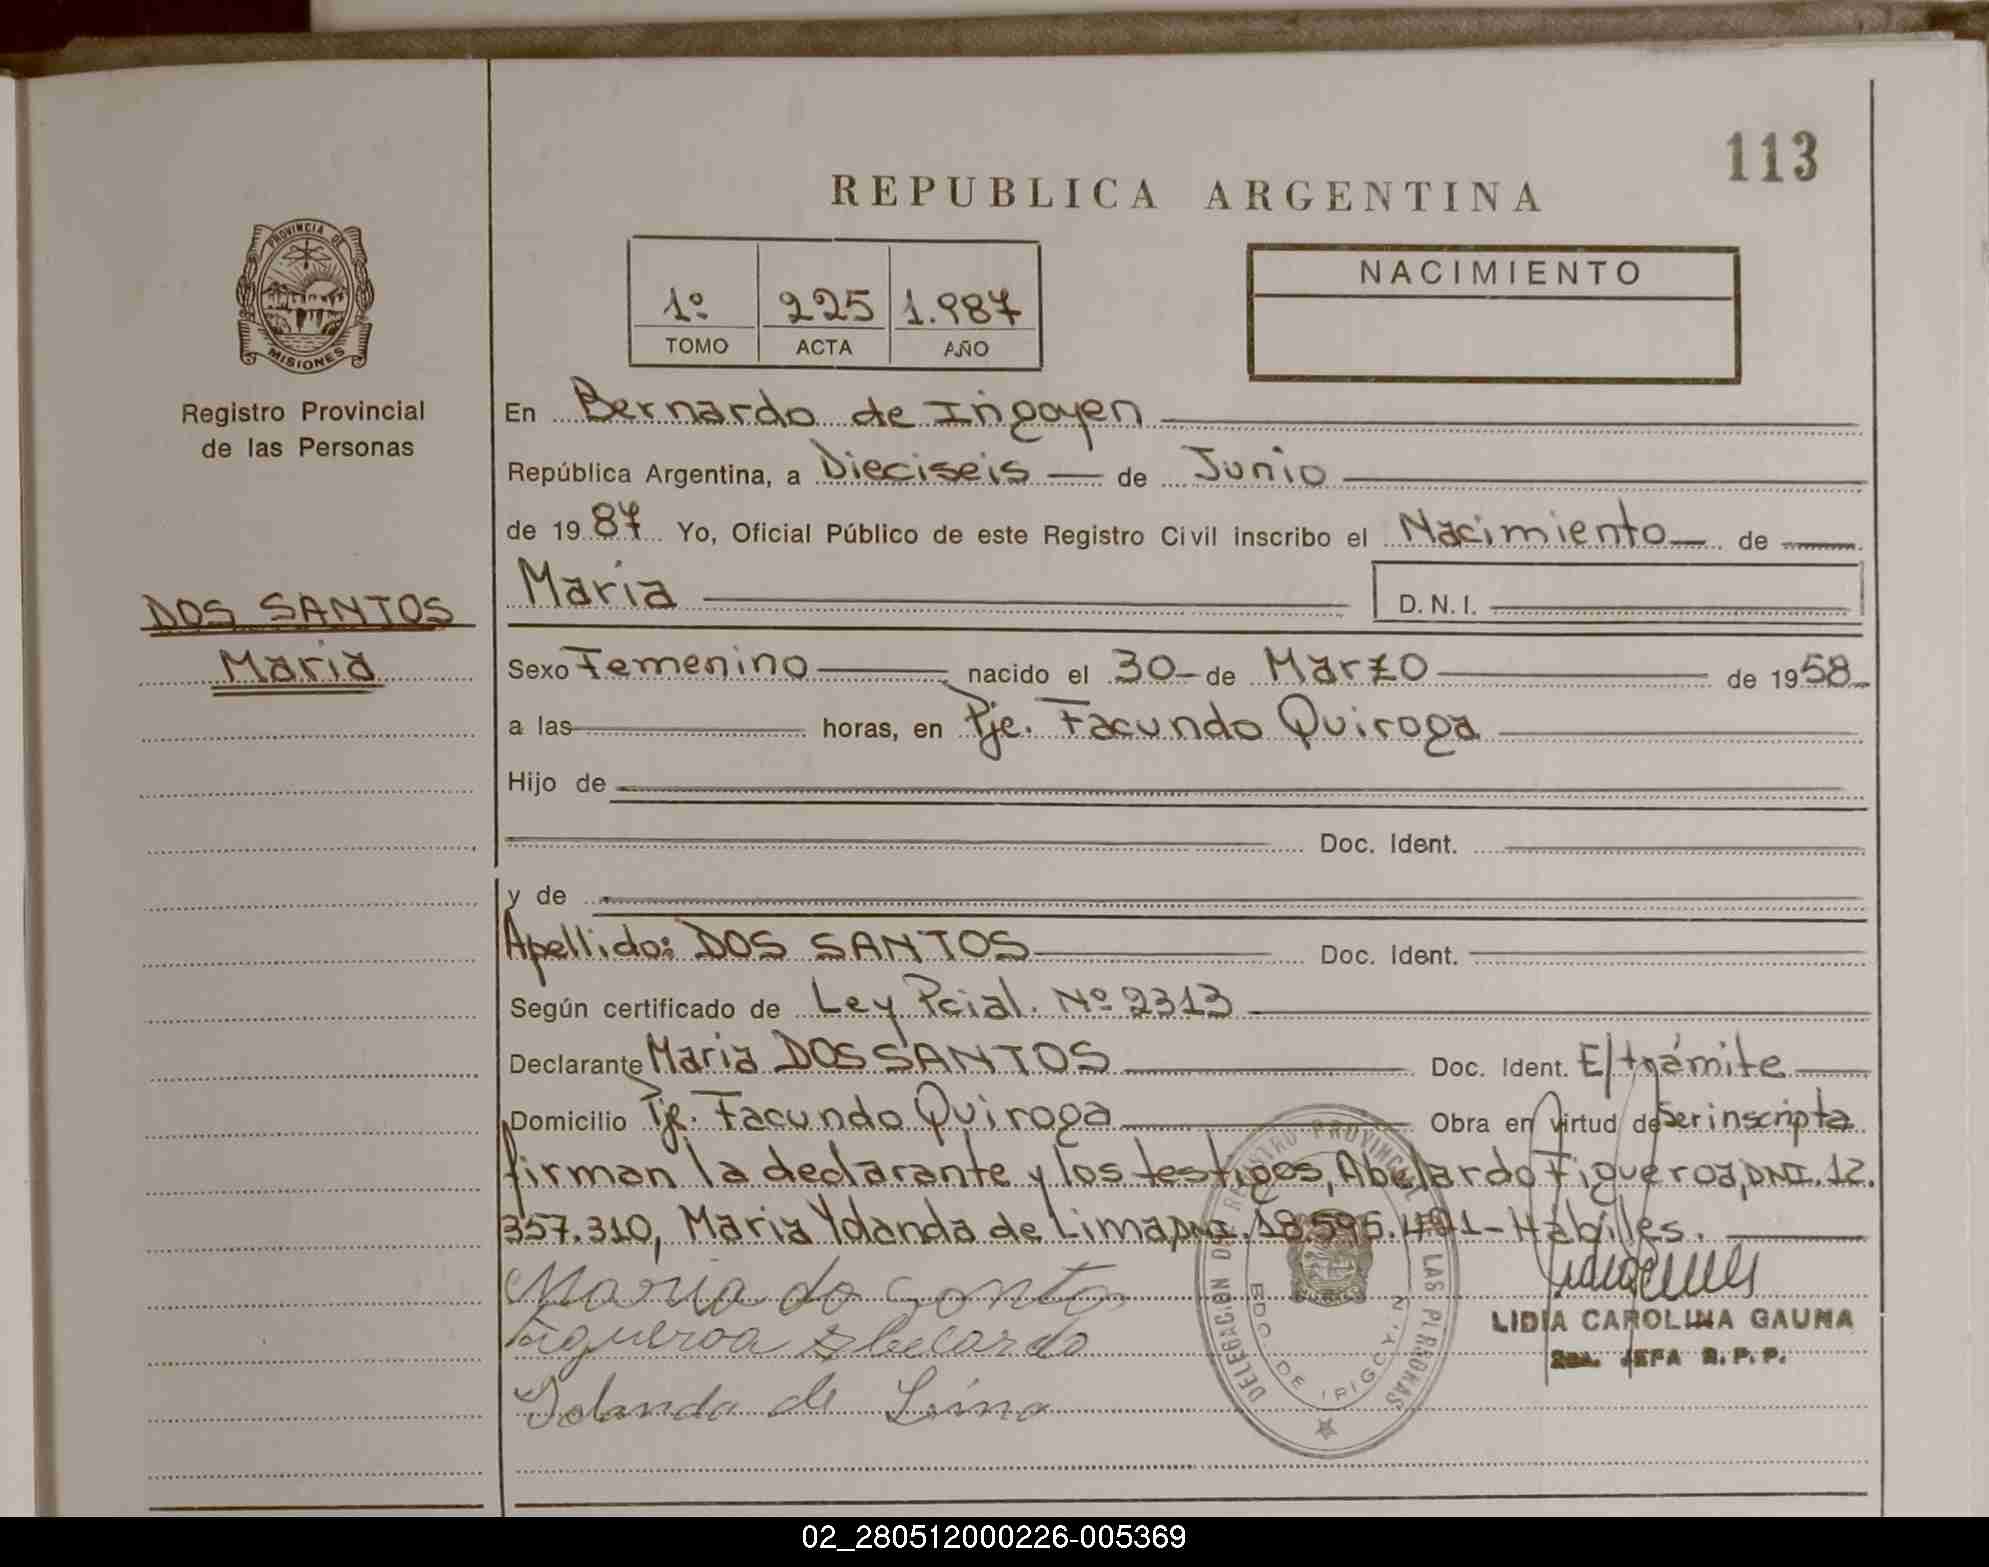 113
REPUBLICA ARGENTINA
PROVINCIA DE
MISIONES
Registro Provincial
de las Personas
1º 225 1.987
TOMO ACTA AÑO
NACIMIENTO
En Bernardo de Irigoyen
República Argentina, a Dieciseis de Junio
de 19 87 Yo, Oficial Público de este Registro Civil inscribo el Nacimiento de
DOS SANTOS
Maria
Maria
D. N. I.
Sexo Femenino nacido el 30 de Marzo de 19 58
a las horas, en Pje. Facundo Quiroga
Hijo de
Doc. Ident.
y de
Apellido: DOS SANTOS Doc. Ident.
Según certificado de Ley Pcial. Nº 2313
Declarante Maria DOS SANTOS Doc. Ident. E/trámite
Domicilio Pje. Facundo Quiroga Obra en virtud de Ser inscripta
firman la declarante y los testigos, Abelardo Figueroa, DNI. 12.
357.310, Maria Yolanda de Lima, DNI. 18.595. - Hábiles.
Maria do
Figueroa Abelardo
Yolanda de Lima
DELEGACION DEL REGISTRO PROVINCIAL DE LAS PERSONAS
BDO DE IRIGOYEN
LIDIA CAROLINA GAUNA
JEFA R. P. P.
02_280512000226-005369